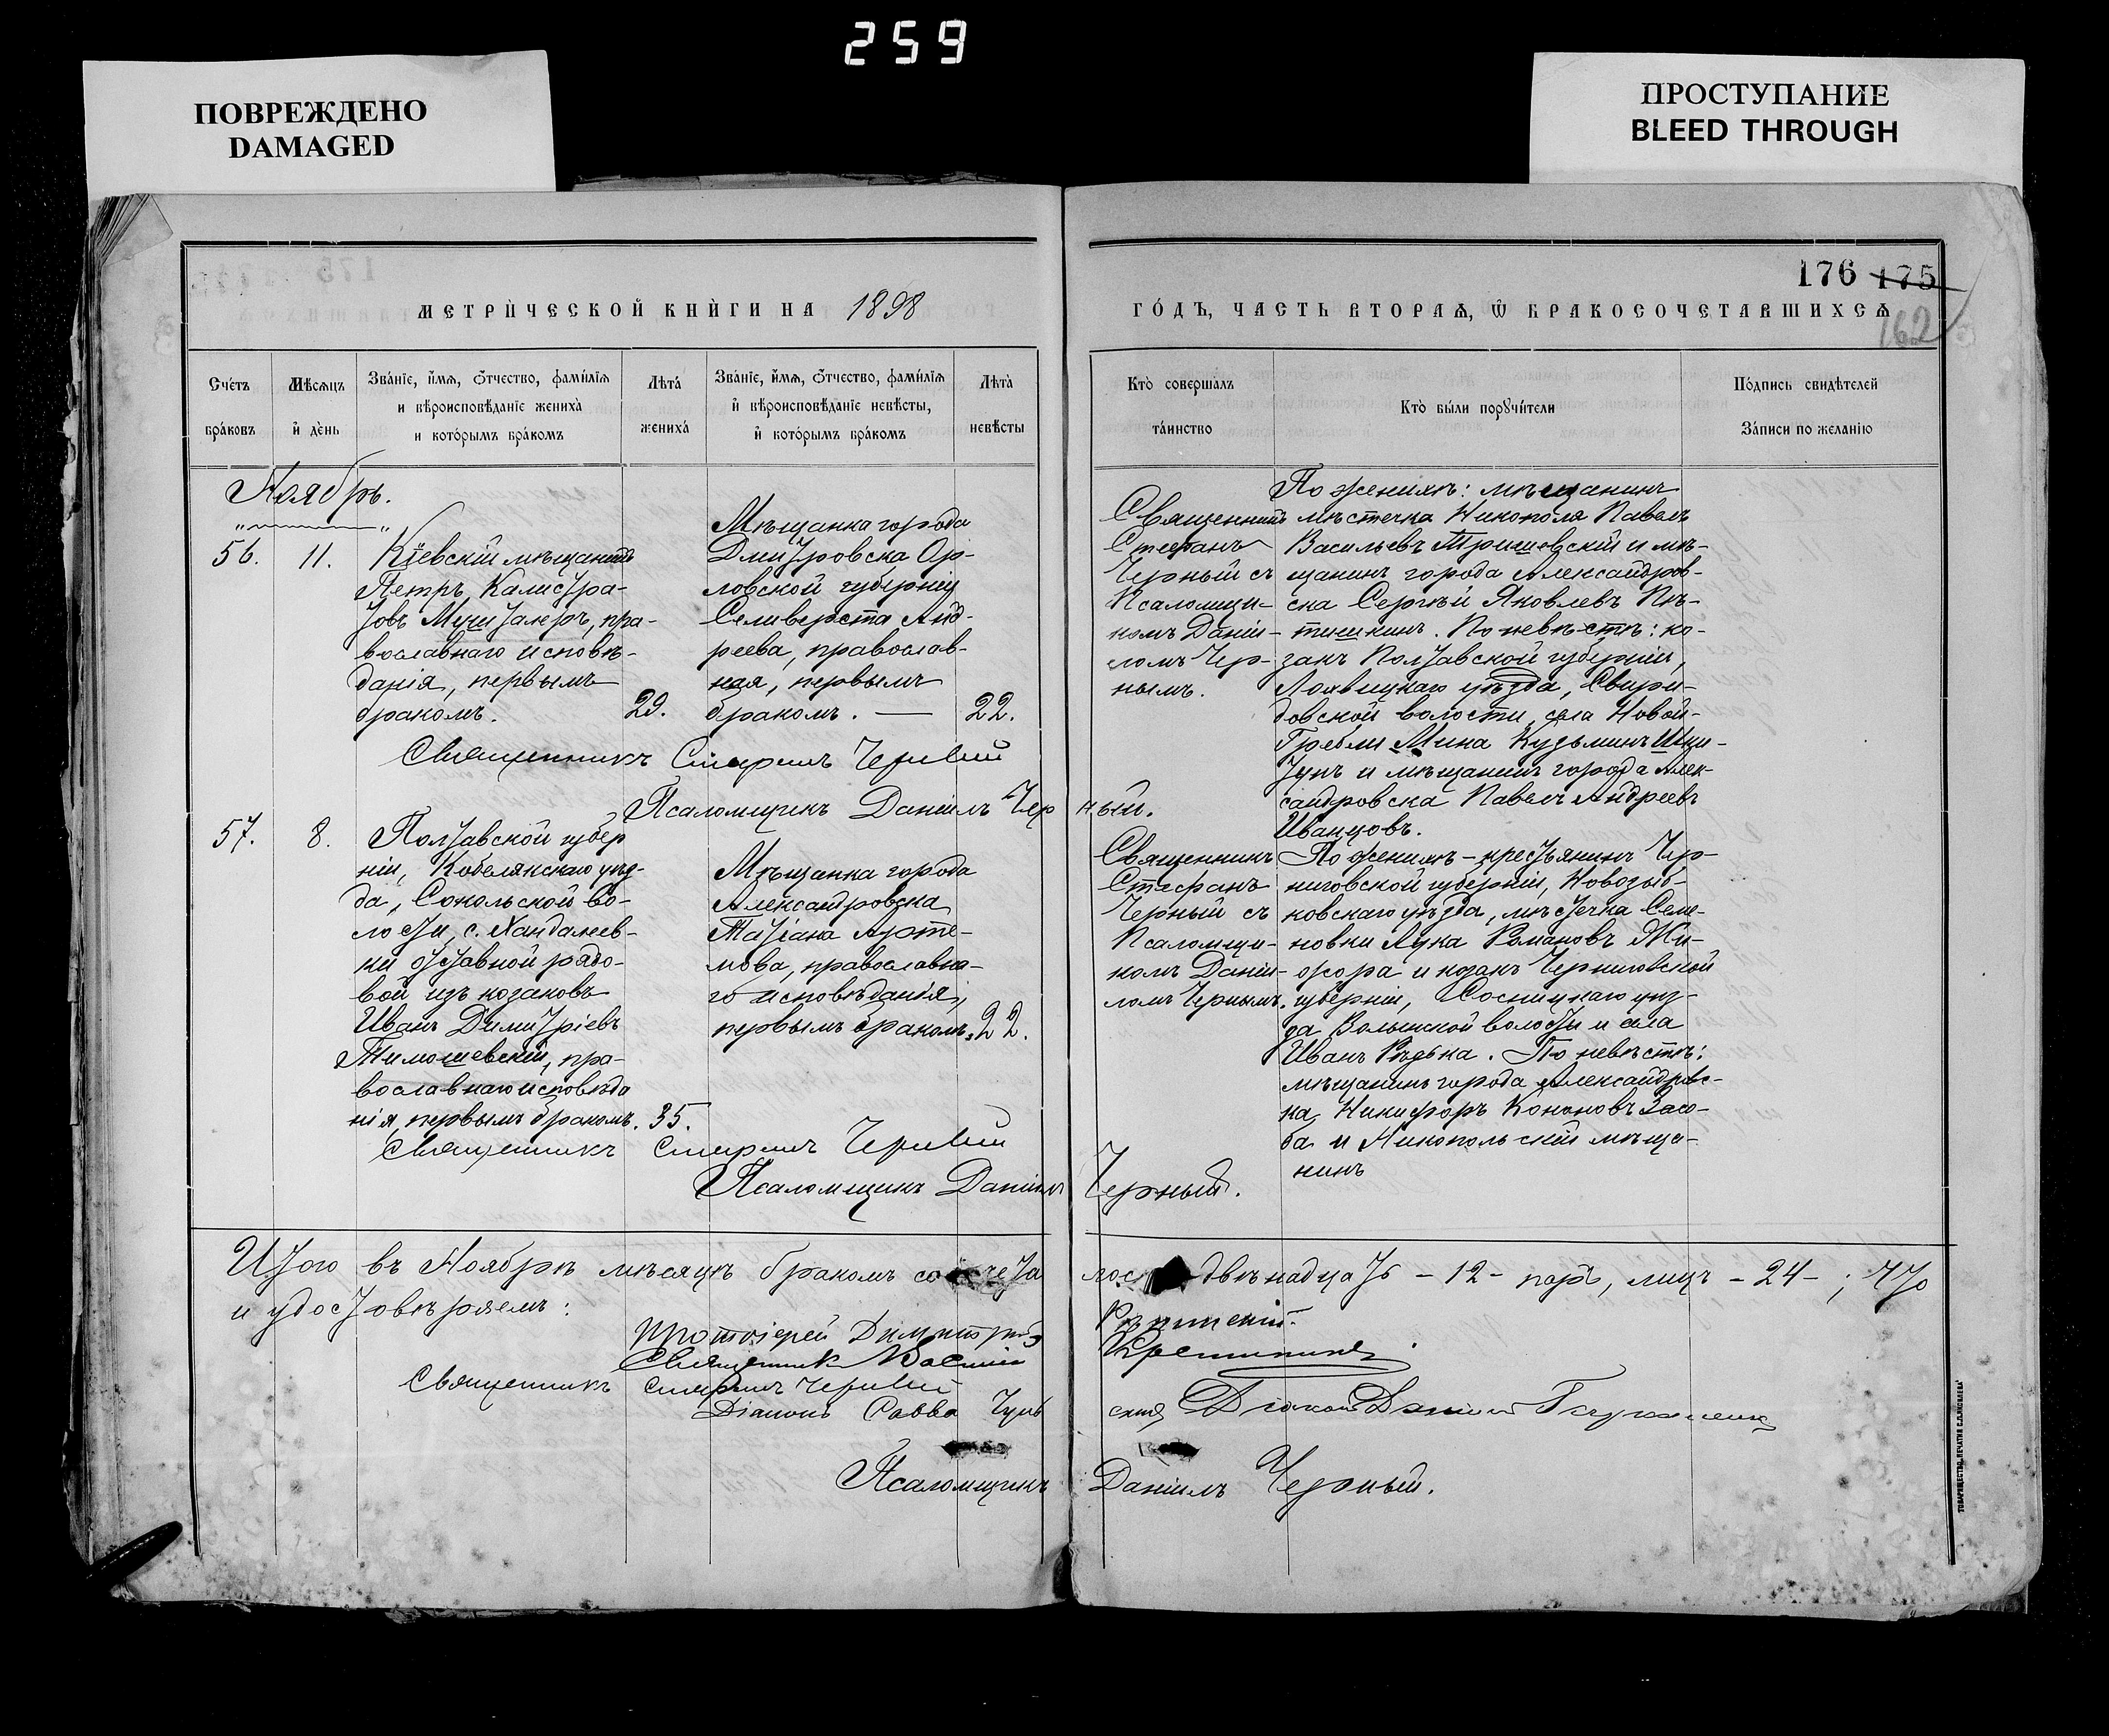 259
ПОВРЕЖДЕНО
DAMAGED
ПРОСТУПАНИЕ
BLEED THROUGH
176 175
162
МЕТРИЧЕСКОЙ КНИГИ НА 1898
ГОДЪ, ЧАСТЬ ВТОРАѦ, Ѡ БРАКОСОЧЕТАВШИХСѦ
Счетъ
браковъ
Мѣсѧцъ
и день
Званіе, имѧ, ѿчество, фамиліѧ
и вѣроисповѣданіе жениха
и которымъ бракомъ
Лѣта
жениха
Званіе, имѧ, ѿчество, фамиліѧ
и вѣроисповѣданіе невѣсты,
и которымъ бракомъ
Лѣта
невѣсты
Кто совершалъ
таинство
Кто были порꙋчители
Подпись свидѣтелей
Записи по желанію
Ноябрь.
56.
11.
Кіевскій мѣщанинъ
Петръ Калистра-
товъ пра-
вославнаго исповѣ-
данія, первымъ
бракомъ.
29.
Мѣщанка города
Дмитровска Ор-
ловской губерніи
Селиверста Анд-
реева, православ-
ная, первымъ
бракомъ. —
22.
Священникъ
Стефанъ
Черный съ
Псаломщи-
комъ Даніи-
ломъ Чер-
нымъ.
По женихѣ: мѣщанинъ
мѣстечка Никополя Павелъ
Васильевъ Тришовскій и мѣ-
щанинъ города Александров-
ска Сергѣй Яковлевъ Пѣ-
тишкинъ. По невѣстѣ: ко-
закъ Полтавской губерніи,
Лохвицкаго уѣзда, Свири-
довской волости, села Новой-
Гребли Мина Кузьминъ Шку-
тупъ и мѣщанинъ города Алек-
сандровска Павелъ Андреевъ
Иванцовъ.
Священникъ Стефанъ Черный
Псаломщикъ Даніилъ Черный.
57.
8.
Полтавской губер
ніи, Кобелякскаго уѣз-
да, Сокольской Во-
лости, с. Хандалеев-
ки отставной рядо-
вой изъ козаковъ
Иванъ Димитріевъ
Тимошевскій, пра-
вославнаго исповѣда
нія, первымъ бракомъ.
35.
Мѣщанка города
Александровска
Татіана Арте-
мова, православна-
го исповѣданія,
первымъ бракомъ.
22.
Священникъ
Стефанъ
Черный съ
Псаломщи-
комъ Даніи-
ломъ Чернымъ.
По женихѣ – крестьянинъ Чер-
ниговской губерніи, Новозыб-
ковскаго уѣзда, мѣстечка Семе-
новки Лука Романовъ Жи-
жора и козакъ Черниговской
губерніи, Сосницкаго уѣз-
да Волынской волости и села
Иванъ Рѣдька. По невѣстѣ:
мѣщанинъ города Александровс-
ка, Никифоръ Кононовъ Засо-
ба и Никопольскій мѣща-
нинъ
Священникъ Стефанъ Черный
Псаломщикъ Даніилъ Черный.
Итого въ Ноябрѣ мѣсяцѣ бракомъ сочета лось двѣнадцать – 12 – паръ, лицъ – 24 – ; что
и удостовѣряемъ:
Протоіерей Димитрій
Священникъ
Священникъ Стефанъ Черный
Діаконъ Савва
Діаконъ
Псаломщикъ Даніилъ Черный.